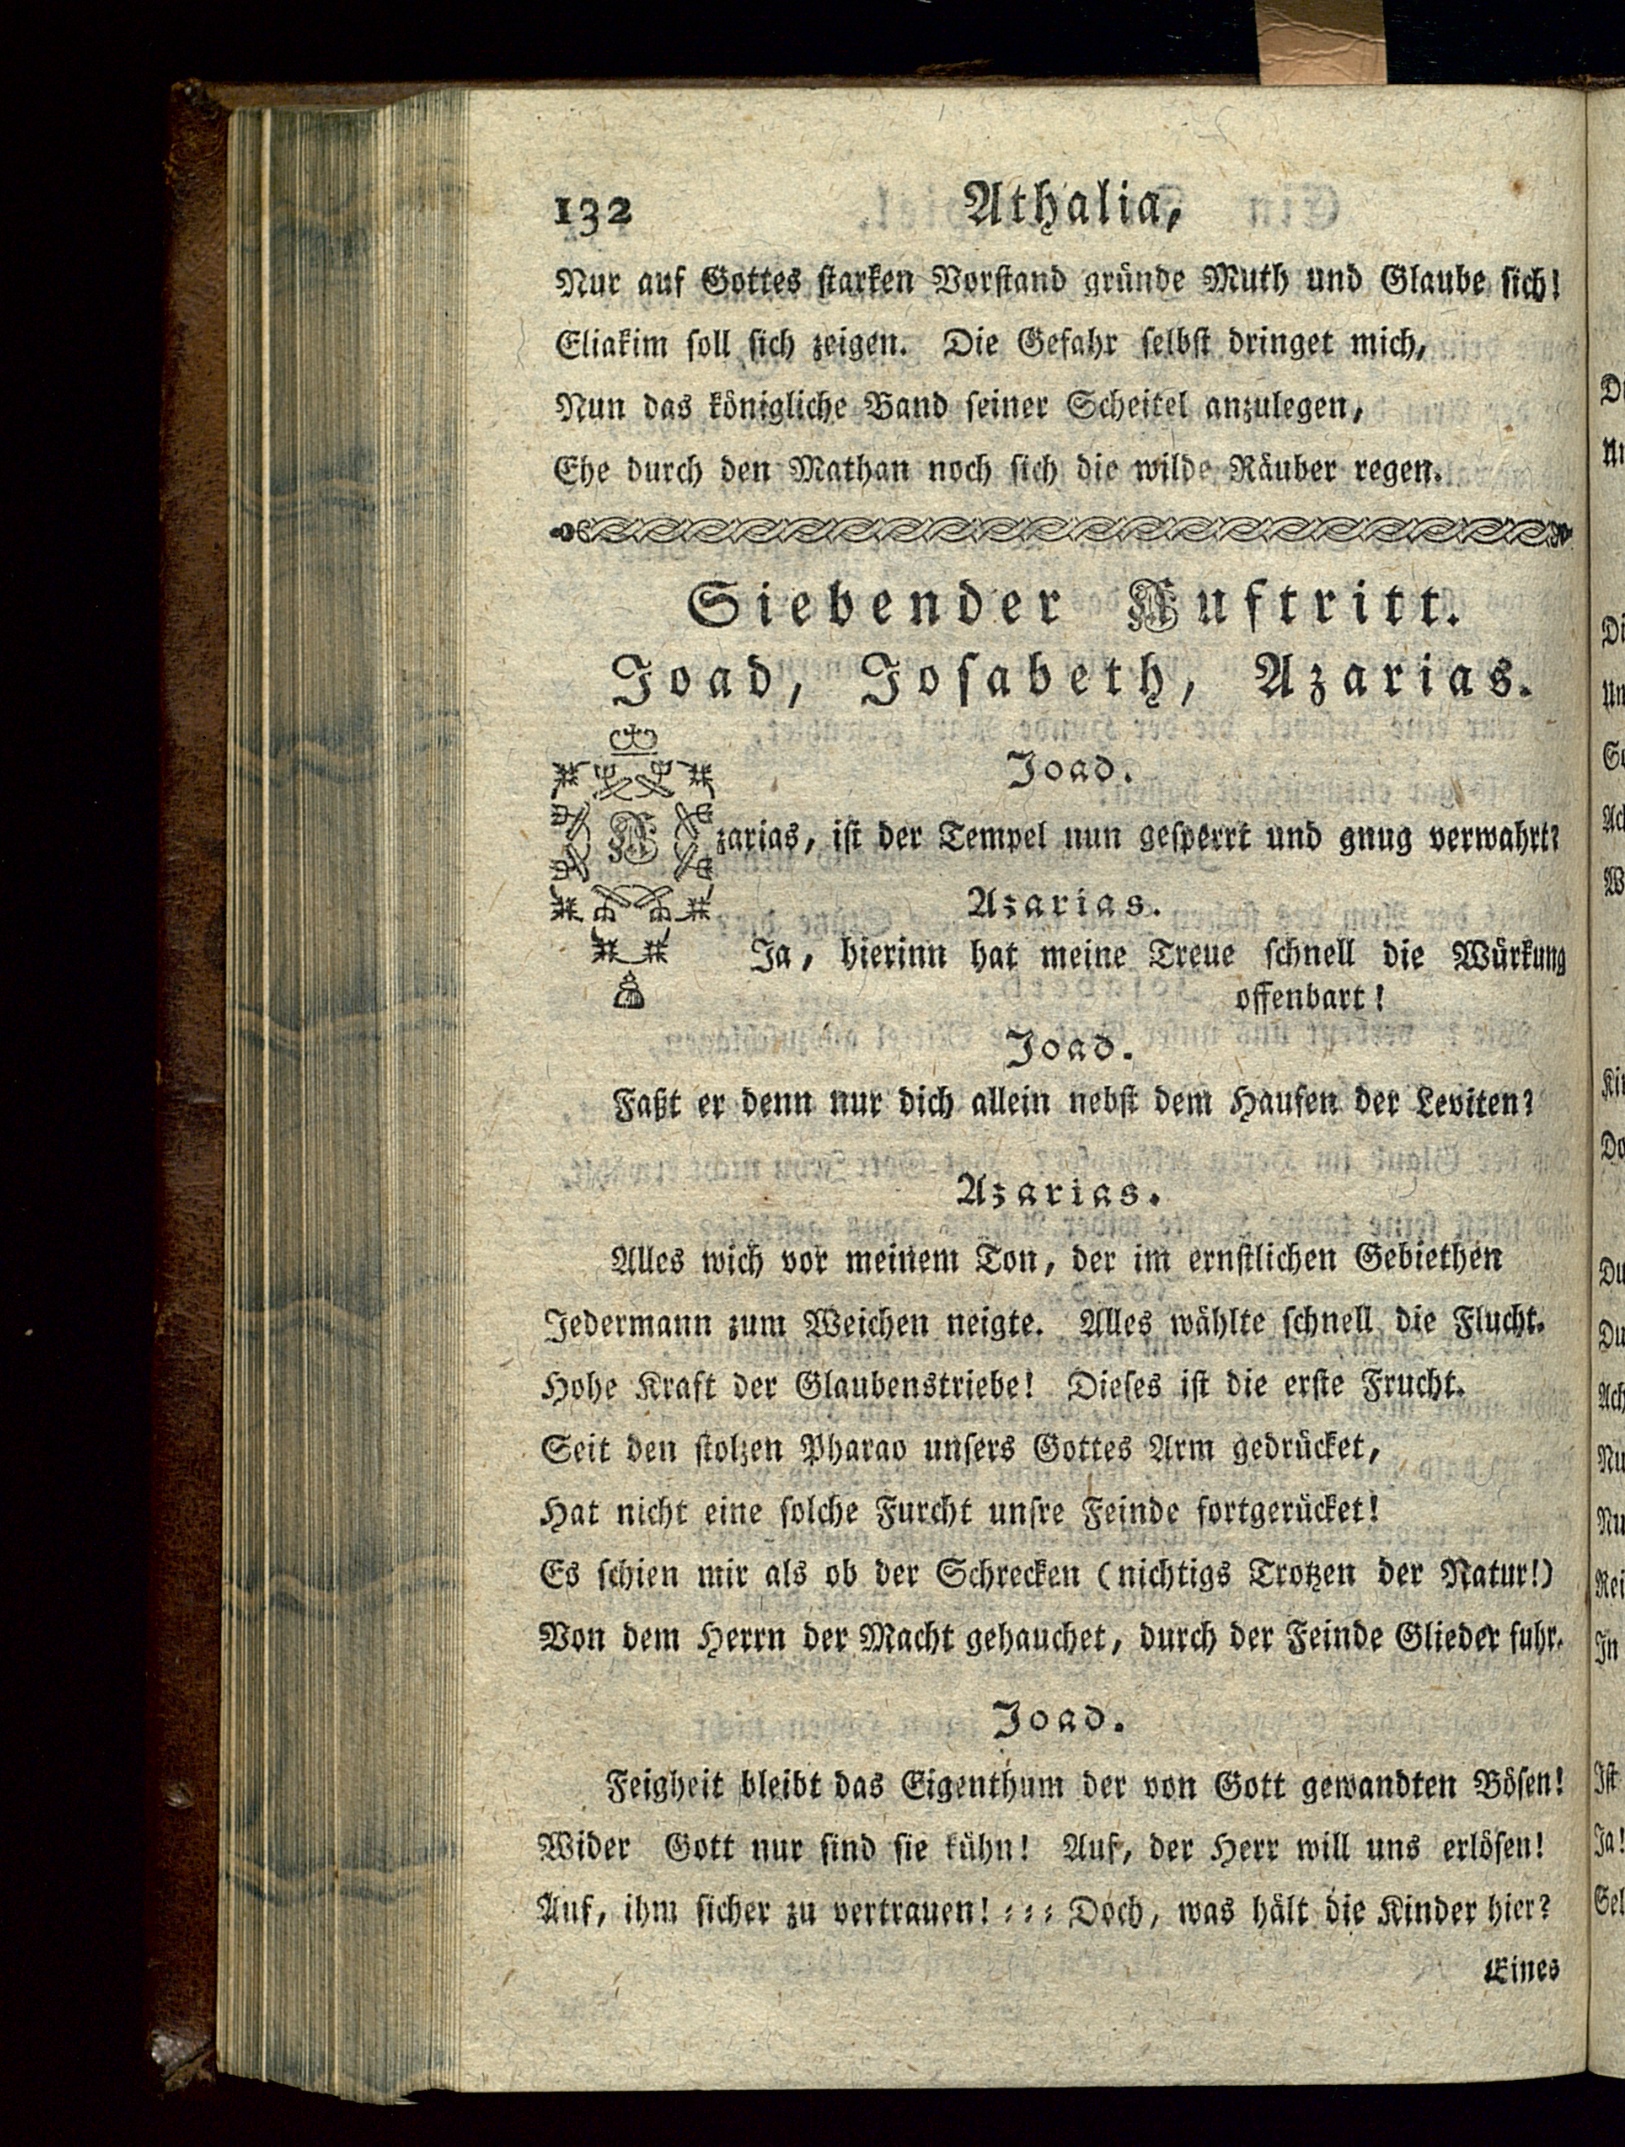 132 Athalia,
Nur auf Gottes starken Vorstand gründe Muth und Glaube sich!
Eliakim soll sich zeigen. Die Gefahr selbst dringet mich,
Nun das königliche Band seiner Scheitel anzulegen,
Ehe durch den Mathan noch sich die wilde Räuber regen.
Siebender Auftritt.
Joad, Josabeth, Azarias.
Joad.
Azarias, ist der Tempel nun gesperrt und gnug verwahrt?
Azarias.
Ja, hierinn hat meine Treue schnell die Würkung
offenbart!
Joad.
Faßt er denn nur dich allein nebst dem Haufen der Leviten?
Azarias.
Alles wich vor meinem Ton, der im ernstlichen Gebiethen
Jedermann zum Weichen neigte. Alles wählte schnell die Flucht.
Hohe Kraft der Glaubenstriebe! Dieses ist die erste Frucht.
Seit den stolzen Pharao unsers Gottes Arm gedrücket,
Hat nicht eine solche Furcht unsre Feinde fortgerücket!
Es schien mir als ob der Schrecken (nichtigs Trotzen der Natur!)
Von dem Herrn der Macht gehauchet, durch der Feinde Glieder fuhr.
Joad.
Feigheit bleibt das Eigenthum der von Gott gewandten Bösen!
Wider Gott nur sind sie kühn! Auf, der Herr will uns erlösen!
Auf, ihm sicher zu vertrauen! = = = Doch, was hält die Kinder hier?
Eines